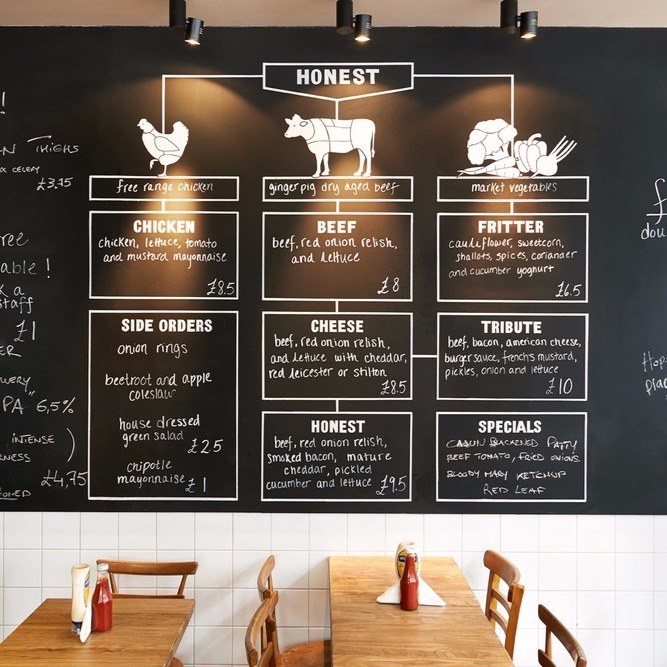 HONEST
free range chicken
ginger pig dry aged beef
market vegetables
CHICKEN
chicken, lettuce, tomato
and mustard mayonnaise
£8.5
SIDE ORDERS
onion rings
beetroot and apple
coleslaw
house dressed
green salad
£2.5
chipotle
mayonnaise £1
BEEF
beef, red onion relish,
and lettuce
£8
CHEESE
beef, red onion relish,
and lettuce with cheddar,
red leicester or stilton
£8.5
HONEST
beef, red onion relish,
smoked bacon, mature
cheddar, pickled
cucumber and lettuce £9.5
FRITTER
cauliflower, sweetcorn,
shallots, spices, coriander
and cucumber yoghurt
£6.5
TRIBUTE
beef, bacon, american cheese,
burger sauce, frenchs mustard,
pickles, onion and lettuce
£10
SPECIALS
CAJUN BLACKENED PATTY
BEEF TOMATO, FRIED ONIONS
BLOODY MARY KETCHUP
RED LEAF
!
THIGHS
CELERY
£3.75
able!
a
staff
£1
PA 6,5%
INTENSE
£4,75
£
dou
Hop
plac